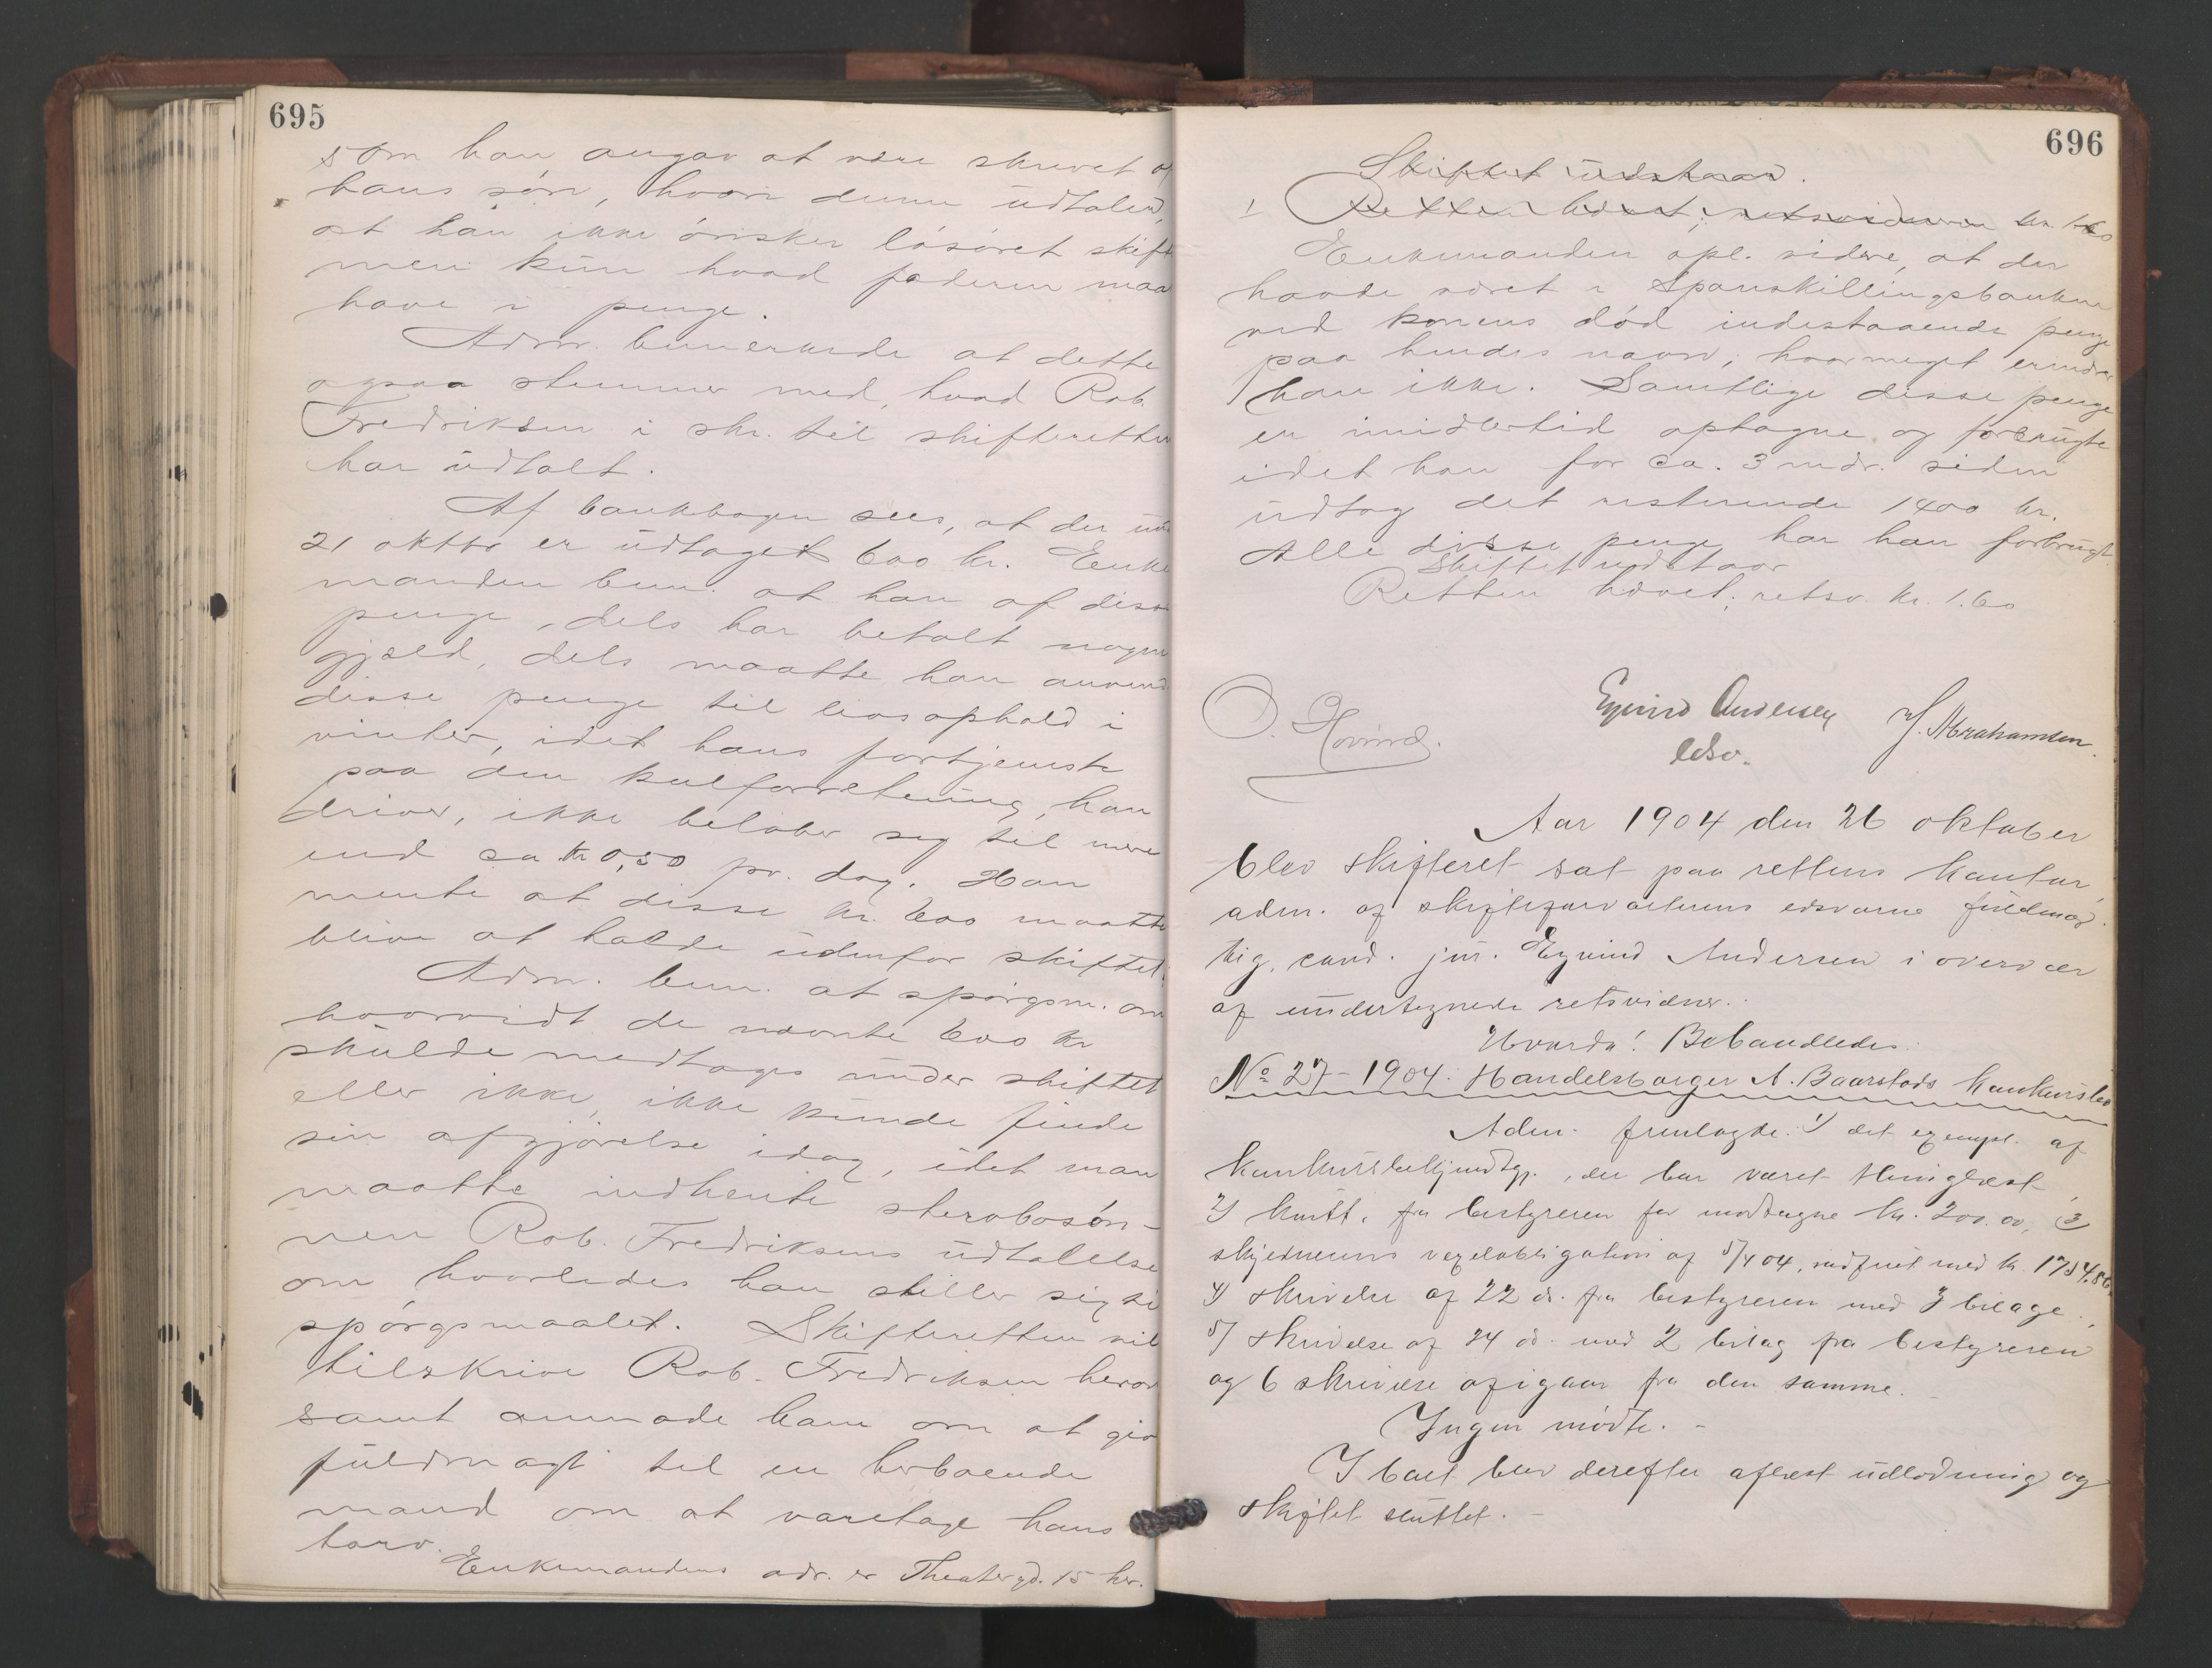 695
som han angav at være skrevet af
hans søn, hvori denne udtaler,
at han ikke ønsker løsøret skift
men kun hvad faderen maa
have i penge.
Adm. bemerkede at dette
ogsaa stemmer med, hvad Rob.
Fredriksen i skr. til skifteretten
har udtalt.
Af bankbogen sees, at der
21 oktbr er udtaget 600 kr. Enke
manden bem. at han af disse
penge, dels har betalt nogen
gjæld, dels maatte han anvend
disse penge til livsophold i
vinter, idet hans fortjeneste
paa den kulforretning, han
driver, ikke beløber sig til mere
end ca kr 0,50 pr. dag. Han
mente at disse kr. 600 maatte
blive at holde udenfor skiftet.
Adm. bem. at spørgsm. om
hvorvidt de nævnte 600 kr
skulde medtages under skiftet
eller ikke, ikke kunde finde
sin afgjørelse idag, idet man
maatte indhente sterbosøn-
nen Rob. Fredriksens udtalelse
om hvorledes han stiller sig til
spørgsmaalet. Skifteretten vil
tilskrive Rob. Fredriksen herom
samt anmode ham om at giv
fuldmagt til en herboende
mand om at varetage hans
tarv.
Enkemandens adr. er Theatergd. 15 her.
696
Skiftet udstaar.
Retten hævet; retsvidneren kr. 1.60
Enkemanden opl. videre, at der
havde været i Sparskillingsbanken
ved konens død indestaaende penge
paa hendes navn; hvormeget erindrer
han ikke. Samtlige disse penge
er imidlertid optagne og forbrugte
idet han for ca. 3 mdr. siden
udtog det resterende 1400 kr.
Alle disse penge har han forbrugt
Skiftet udstaar
Retten hævet; retsv. kr. 1.60
O. Hovind.
Eyvind Andersen
edsv.
J. Abrahamsen.
Aar 1904 den 26 oktober
blev skifteret sat paa rettens kontor,
adm. af skifteforvalterens edsvorne fuldmæg-
tig, cand. jur. Eyvind Andersen i overvær
af undertegnede retsvidner.
Hvorda! Behandledes:
No 27 - 1904. Handelsborger A. Baarstads konkursbo
Adm. fremlagde: 1) det exempl. af
konkursbekjendtgj., der har været thinglæst,
2) kvitt. fra bestyreren for modtagne kr. 200.00, 3)
skjødnerens vexelobligation af 5/4 04, indfriet med kr. 1754,86
4) skrivelse af 22 ds. fra bestyreren med 3 bilage,
5) skrivelse af 24 ds. med 2 bilag fra bestyreren
og 6 skrivelse af igaar fra den samme.
Ingen mødte. -
I boet blev derefter aflæst udlodning og
skiftet sluttet. -